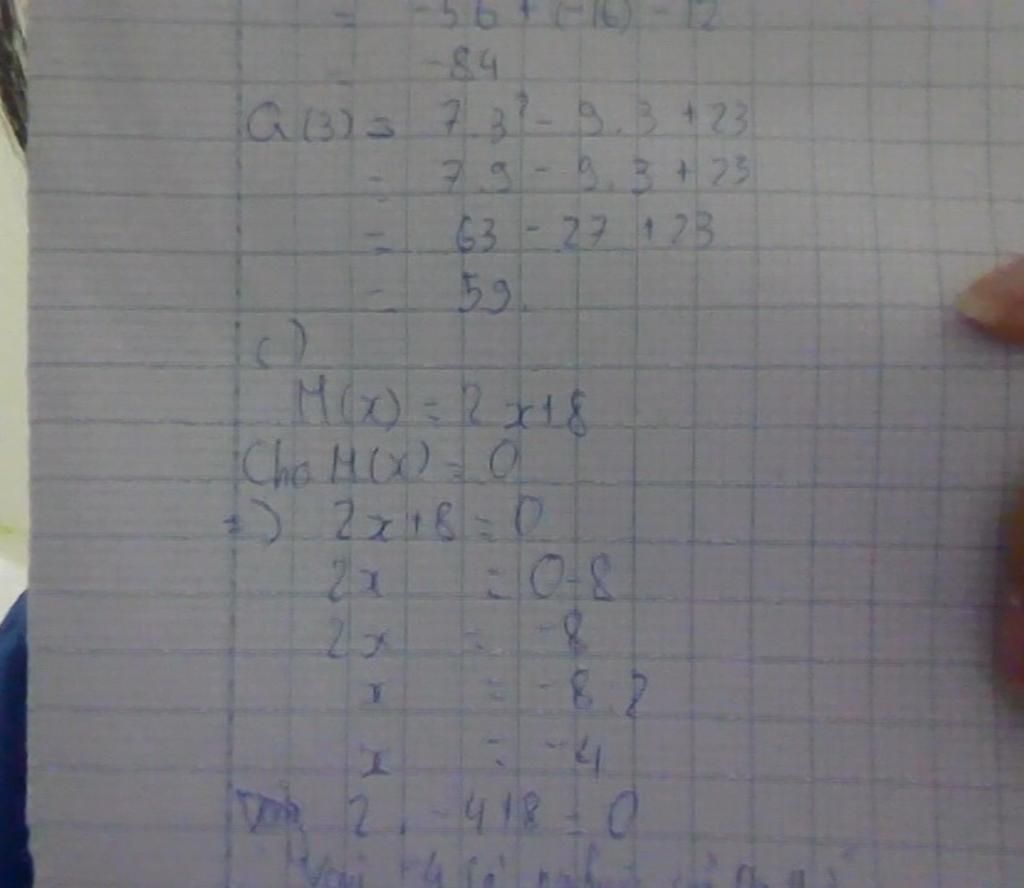 = -56 + (-16) - 12
= -84
Q(3) = 7.3² - 9.3 + 23
= 7.9 - 9.3 + 23
= 63 - 27 + 23
= 59.
c)
H(x) = 2x+8
Cho H(x) = 0
=) 2x+8 = 0
2x = 0-8
2x = -8
x = -8:2
x = -4
2. -4+8 = 0
-4 là